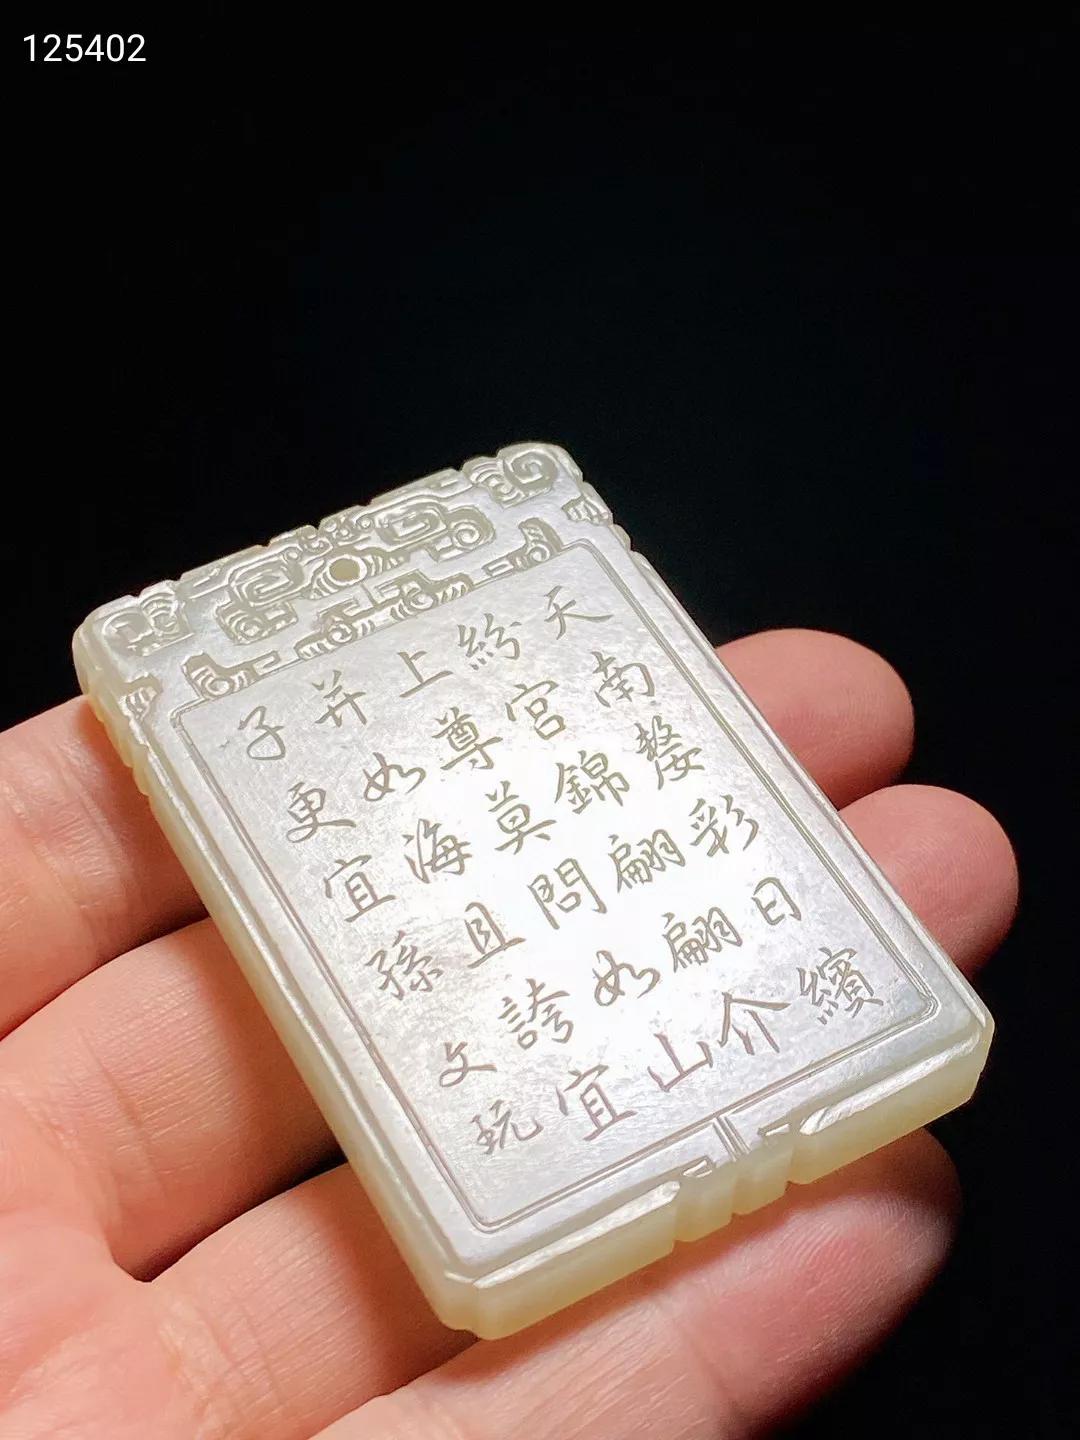 125402
天南婺彩日繽
紛宮錦翩翩介
上尊莫問如山
并如海且誇宜
子更宜孫文玩